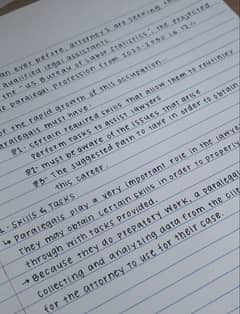 an ever before, attorneys are seeking
qualified legal assistants.
"US Bureau of Labor Statistics", the projected
paralegal profession from 2020-2030 is 12%.
for the rapid growth of this occupation,
paralegals must have:
#1: certain required skills that allow them to routinely
perform tasks to assist lawyers
#2: must be aware of the issues that arise
#3: The suggested path to take in order to obtain
this career.
Skills & Tasks
↳ Paralegals play a very important role in the lawye
They may obtain certain skills in order to properly
through with tasks provided.
→ Because they do prepatory work, a paralega
collecting and analyzing data from the clie
for the attorney to use for their case.